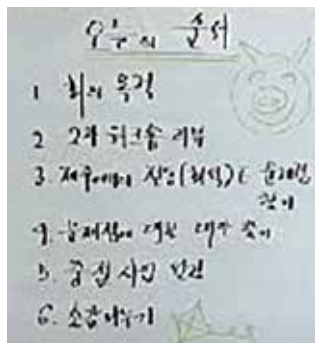 오늘의 순서
1 회의 목적
2 2차 워크숍 리뷰
3. 제주에서의 (회식)
찾기
4. 문제점에 대한 대안 찾기
5. 중점사업 선정
6. 소감나누기